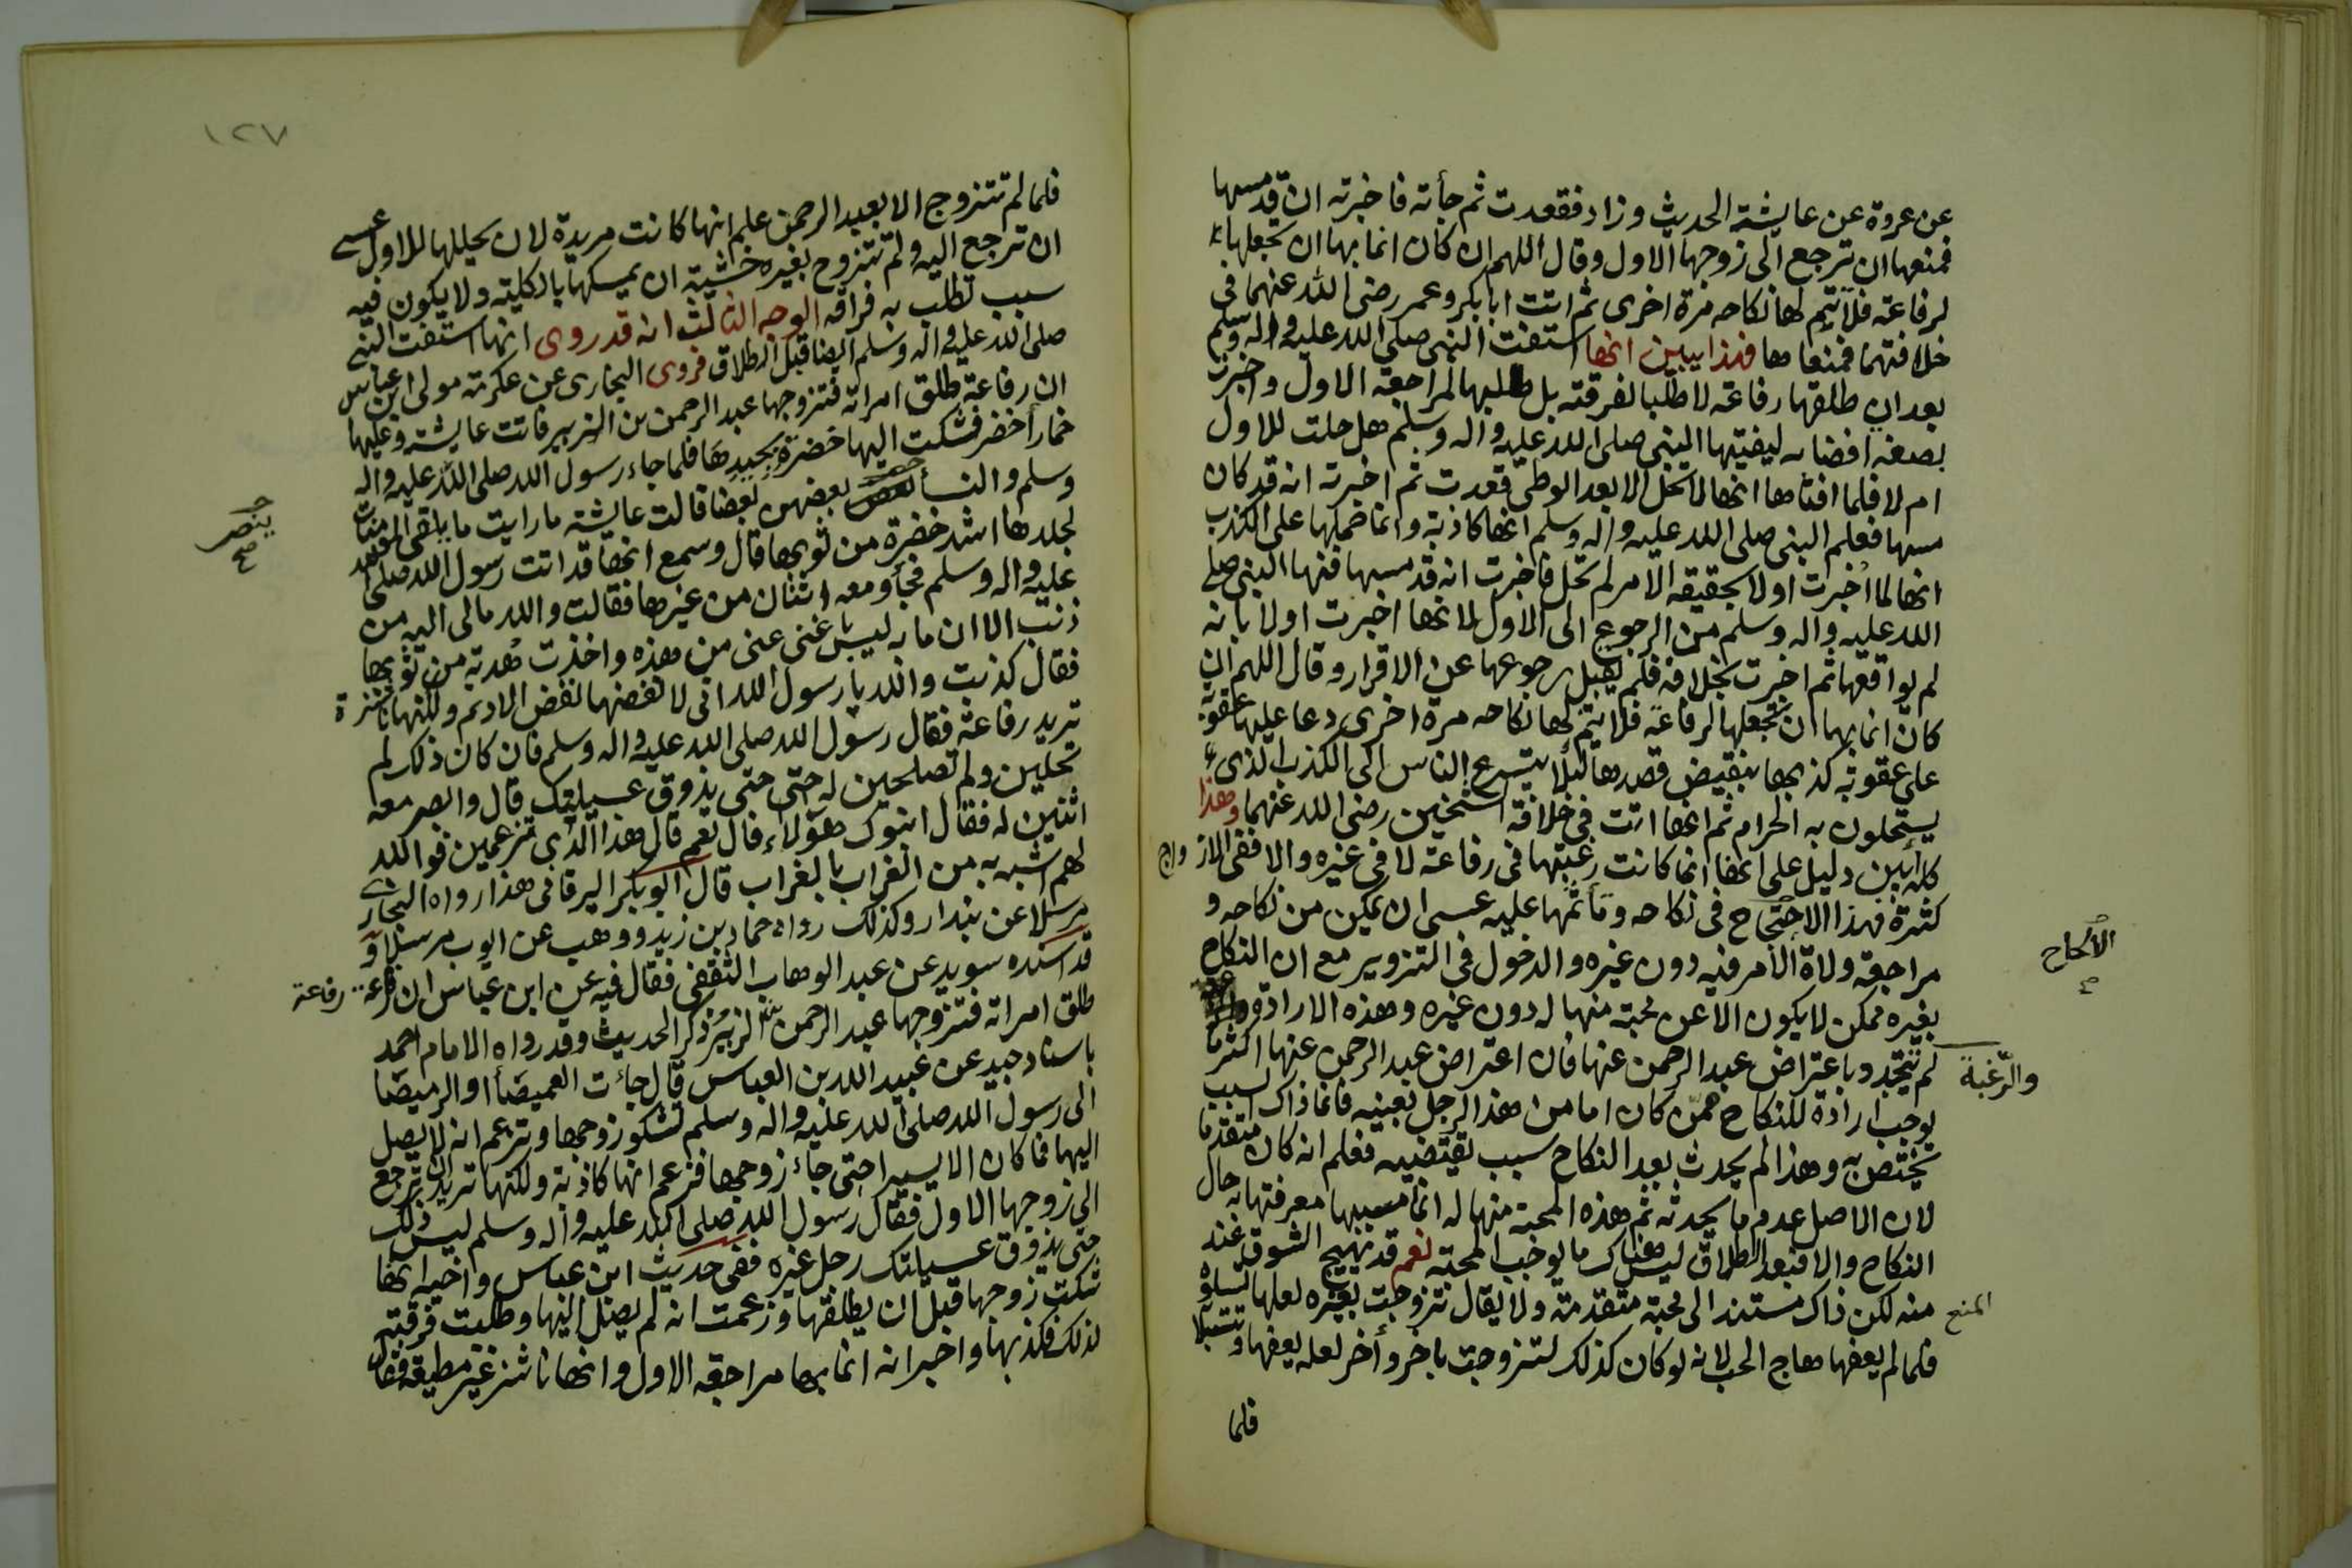 عن عروة عن عايشة الحديث وزاد فقعدت ثم جأته فاخبرته ان قد مسها
فمنعها ان ترجع الى زوجها الاول وقال اللهم ان كان انما بها ان تجعلها
لرفاعة فلا تتم لها نكاحه مرة اخرى ثم اتت ابا بكر وعمر رضى الله عنهما فى
خلافتهما فمنعاها فهذا يبين انها استفتت النبى صلى الله عليه واله وسلم
بعد ان طلقها رفاعة لا طلبا لفرقته بل طلبها لمراجعة الاول واخبرت
بصفة افضائه ليفتيها النبى صلى الله عليه واله وسلم هل حلت للاول
ام لا فلما افتاها انها لا تحل الا بعد الوطى قعدت ثم اخبرته انه قد كان
مسها فعلم النبى صلى الله عليه واله وسلم انها كاذبة وانما حملها على الكذب
انها لما اخبرت اولا بحقيقة الامر لم تحل فاخبرت انه قد مسها فنهاها النبى صلى
الله عليه واله وسلم من الرجوع الى الاول لانها اخبرت اولا بانه
لم يواقعها ثم اخبرت بخلافه فلم يقبل رجوعها عن الاقرار وقال اللهم ان
كان انما بها ان تجعلها لرفاعة فلا يتم لها نكاحه مرة اخرى دعا عليها عقوبة
على عقوبة كذبها بنقيض قصدها لئلا يتسرع الناس الى الكذب الذى
يستحلون به الحرام ثم انها اتت فى خلافة الشيخين رضى الله عنهما وهذا
كله ابين دليل على انها انما كانت رغبتها فى رفاعة لا فى غيره والا ففى الازواج
كثرة فهذا الالحاح فى نكاحه وتأثمها عليه عسى ان تمكن من نكاحه و
مراجعة ولاة الامر فيه دون غيره والدخول فى التزوير مع ان النكاح
بغيره ممكن لا يكون الا عن محبة منها له دون غيره وهذه الارادة والرغبة
لم تتجدد باعتراض عبد الرحمن عنها فان اعتراض عبد الرحمن عنها اكثر ما
يوجب ارادة للنكاح ممن كان اما من هذا الرجل بعينه فانما ذاك لسبب
يختص به وهذا لم يحدث بعد النكاح سبب يقتضيه فعلم انه كان متقدما
لان الاصل عدم ما يحدثه ثم هذه المحبة منها له انما سببها معرفتها به حال
النكاح والا فبعد الطلاق ليس هناك ما يوجب المحبة نعم قد تهيج الشوق عند
منه لكن ذاك مستند الى محبة متقدمة ولا يقال تزوجت بغيره لعلها تسلوه
فلما لم يعفها هاج الحب لانه لو كان كذلك لتزوجت باخر وأخر لعله يعفها و
فلما
الالحاح
والرّغبة
المنع
١٢٧
فلما لم تتزوج الا بعبد الرحمن علم انها كانت مريدة لان يحللها للاول عسى
ان ترجع اليه ولم تتزوج بغيره خشية ان يمسكها بالكلية ولا يكون فيه
سبب تطلب به فراقه الوجه الثالث انه قد روى انها استفتت النبى
صلى الله عليه واله وسلم ايضا قبل الطلاق فروى البخارى عن عكرمة مولى ابن عباس
ان رفاعة طلق امراته فتزوجها عبد الرحمن بن الزبير فاتت عايشة وعليها
خمار أخضر فشكت اليها خضرة بجلدها فلما جاء رسول الله صلى الله عليه واله
وسلم والنسأ بعضهن بعضا قالت عايشة ما رايت ما يلقى المومنات
لجلدها اشد خضرة من ثوبها قال وسمع انها قد اتت رسول الله صلى الله
عليه واله وسلم فجأ ومعه اثنان من غيرها فقالت والله مالى اليه من
ذنب الا ان ما به ليس باغنى عنى من هذه واخذت هدبة من ثوبها
فقال كذبت والله يا رسول الله انى لانفضها نفض الاديم ولكنها ناشزة
تريد رفاعة فقال رسول الله صلى الله عليه واله وسلم فان كان ذلك لم
تحلين ولم تصلحين له حتى حتى يذوق عسيلتك قال وابصر معه
اثنين له فقال ابنوك هؤلاء قال نعم قال هذا الذى تزعمين فوالله
لهم اشبه به من الغراب بالغراب قال ابو بكر البرقانى هذا رواه البخارى
مرسلا عن بندار وكذلك رواه حماد بن زيد ووهيب عن ايوب مرسلا و
قد اسنده سويد عن عبد الوهاب الثقفى فقال فيه عن ابن عباس ان رفاعة
طلق امراته فتزوجها عبد الرحمن بن الزبير ذكر الحديث وقد رواه الامام احمد
باسناد جيد عن عبيد الله بن العباس قال جاءت الغميصأ او الرميصا
الى رسول الله صلى الله عليه واله وسلم تشكو زوجها وتزعم انه لا يصل
اليها فما كان الا يسيرا حتى جاء زوجها فزعم انها كاذبة ولكنها تريد ان ترجع
الى زوجها الاول فقال رسول الله صلى الله عليه واله وسلم ليس ذلك
حتى يذوق عسيلتك رجل غيره ففى حديث ابن عباس واخيه انها
شكت زوجها قبل ان يطلقها وزعمت انه لم يصل اليها وطلبت فرقته
لذلك فكذبها واخبر انه انما بها مراجعة الاول وانها ناشز غير مطيعة فقال
ينصر
رفاعة